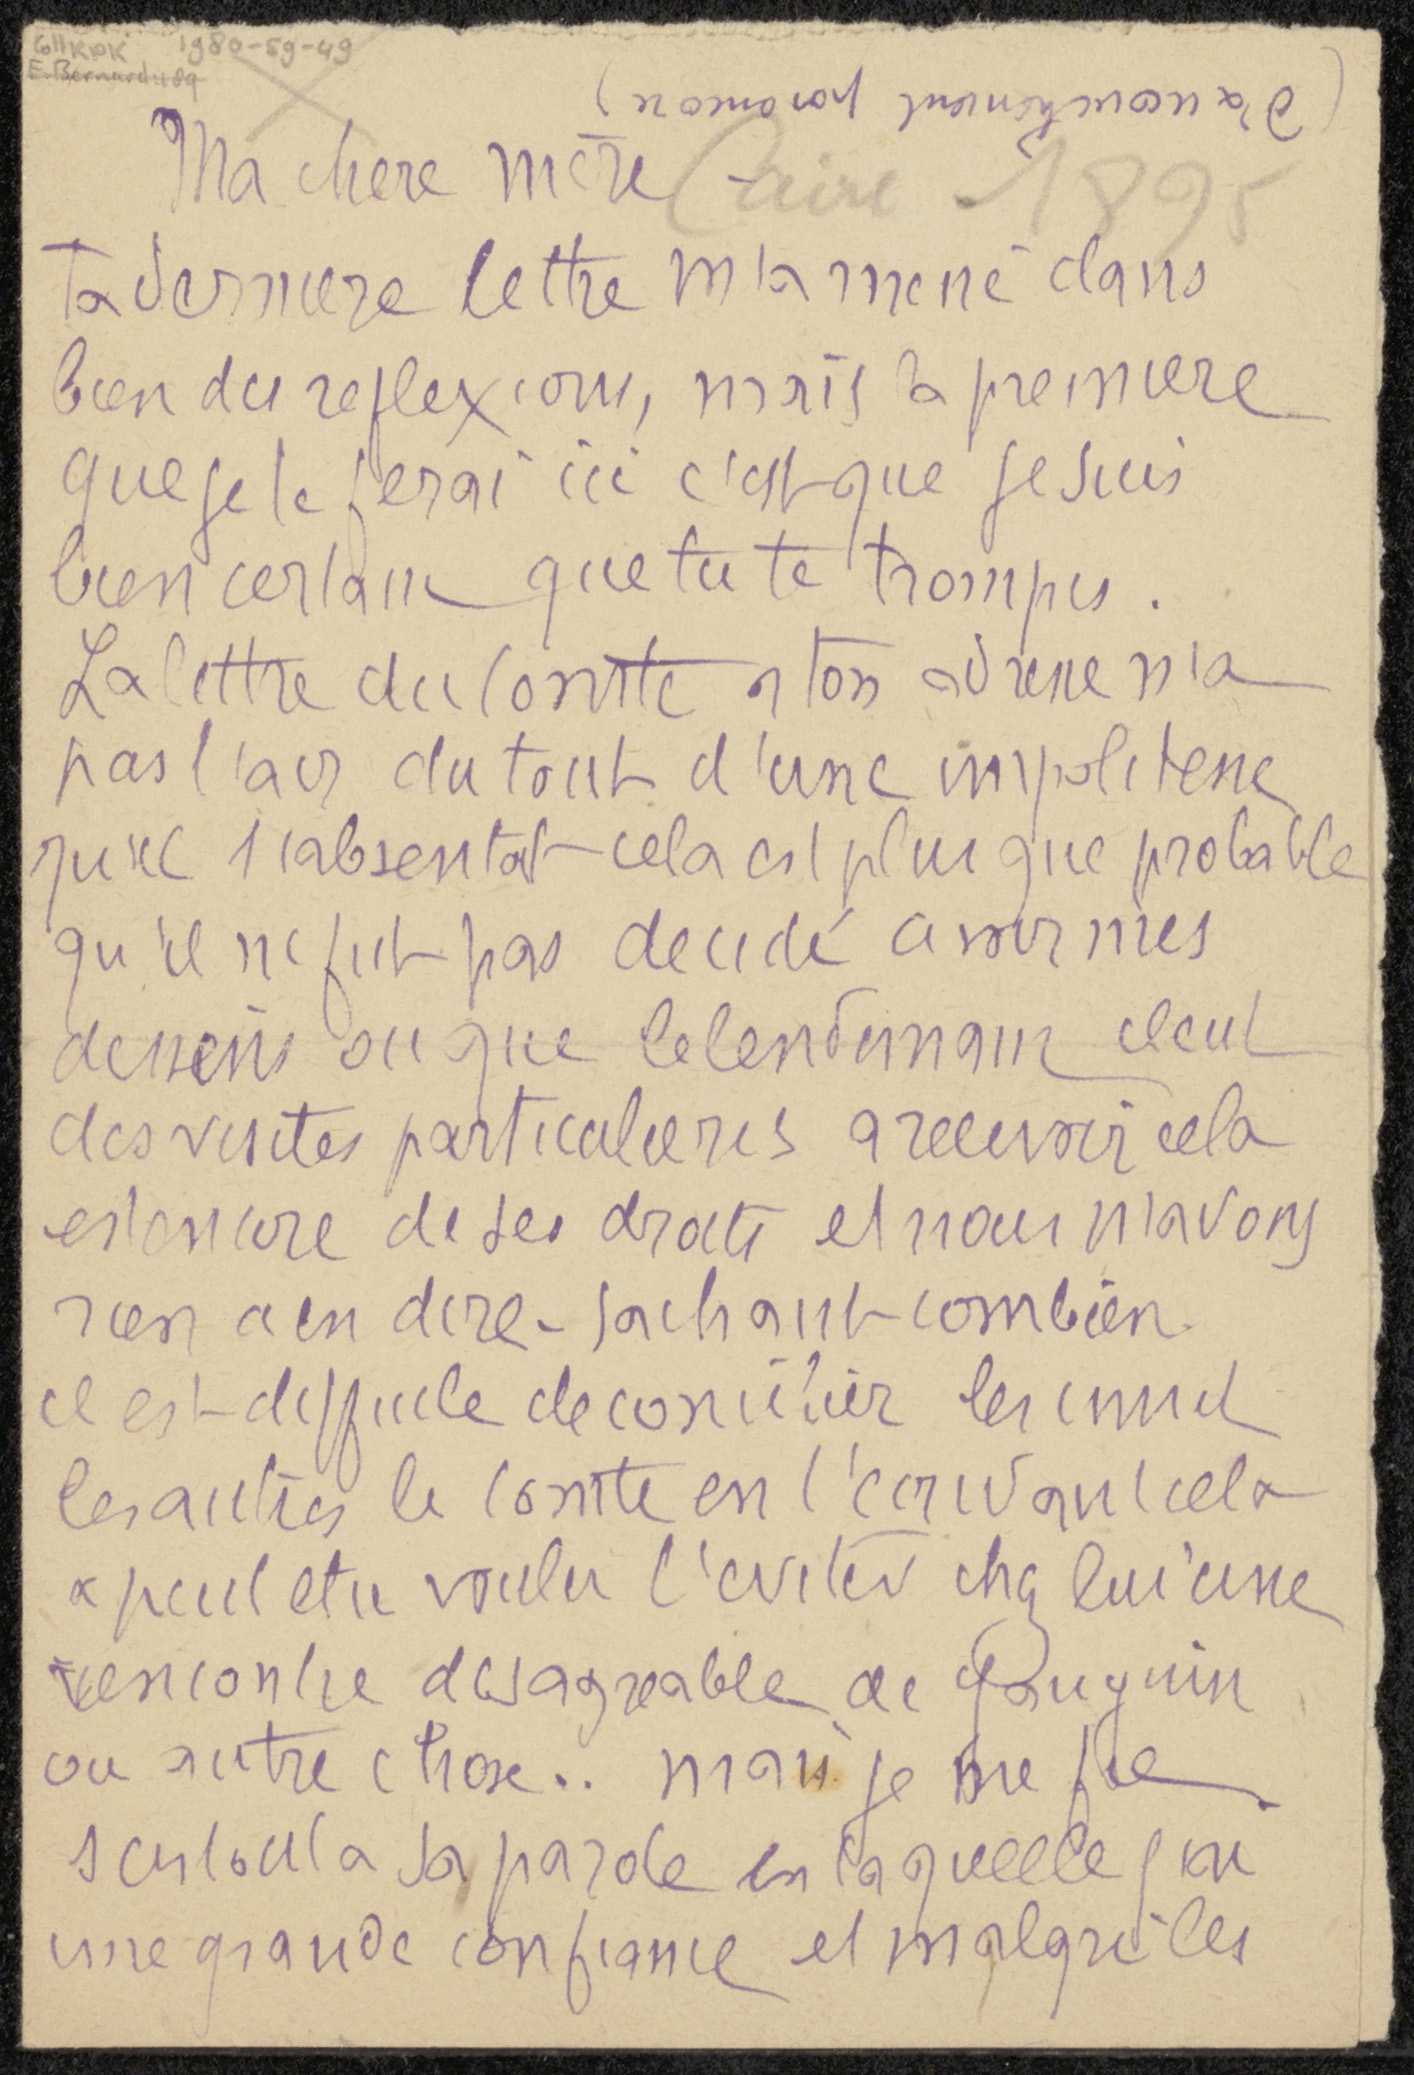 GIIKPK 1980-59-49
E. Bernard: 189
(Franchement paromore)
Ma chere mère Caire - 1895
ta derniere lettre m'a mené dans
bien des reflexions, mais la premiere
que je te ferai ici c'est que je suis
bien certain que tu te trompes.
La lettre du Comte a ton adresse n'a
pas l'air du tout d'une impolitesse
qu'il s'absentat cela est plus que probable
qu'il ne fut pas decidé a voir mes
dessins ou que le lendemain il eut
des visites particulieres a recevoir cela
est encore de ses droits et nous n'avons
rien a en dire - sachant combien
il est difficile de concilier les uns et
les autres le Comte en t'ecrivant cela
a peut etre voulu t'eviter chez lui une
rencontre desagreable de Gauguin
ou autre chose.. mais je me fie
surtout a sa parole en laquelle j'ai
une grande confiance et malgré les